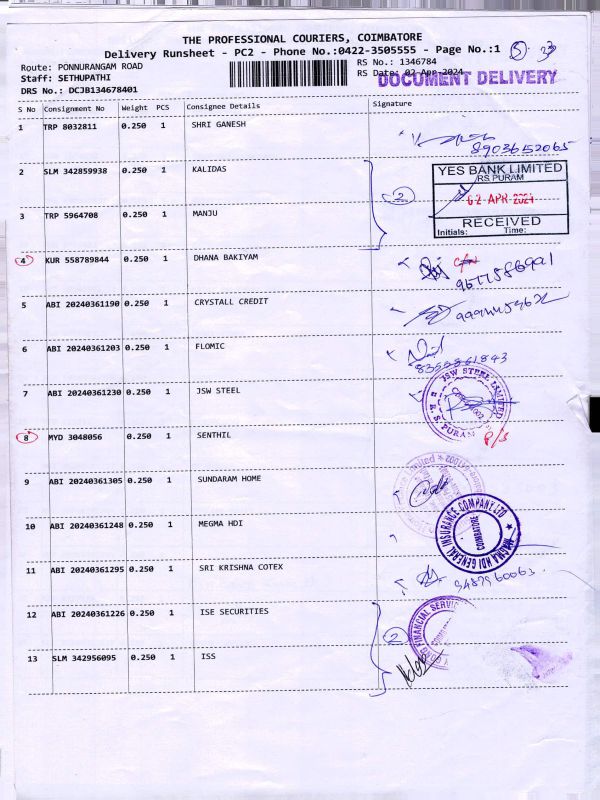 THE PROFESSIONAL COURIERS, COIMBATORE
Delivery Runsheet - PC2 - Phone No.:0422-3505555 - Page No.:1
Route: PONNURANGAM ROAD
RS No.: 1346784
Staff: SETHUPATHI
RS Date: 02-Apr-2024
DOCUMENT DELIVERY
DRS No.: DCJB134678401
S No Consignment No Weight PCS Consignee Details Signature
1 TRP 8032811 0.250 1 SHRI GANESH
8903652065
2 SLM 342859938 0.250 1 KALIDAS
2
YES BANK LIMITED
RS.PURAM
RECEIVED
Initials: Time:
3 TRP 5964708 0.250 1 MANJU
4 KUR 558789844 0.250 1 DHANA BAKIYAM
5 ABI 20240361190 0.250 1 CRYSTALL CREDIT
6 ABI 20240361203 0.250 1 FLOMIC
7 ABI 20240361230 0.250 1 JSW STEEL
JSW STEEL LIMITED
R.S. PURAM
8 MYD 3048056 0.250 1 SENTHIL
P/S
9 ABI 20240361305 0.250 1 SUNDARAM HOME
10 ABI 20240361248 0.250 1 MEGMA HDI
MAGMA HDI GENERAL INSURANCE COMPANY LTD
COIMBATORE
11 ABI 20240361295 0.250 1 SRI KRISHNA COTEX
9487960063
12 ABI 20240361226 0.250 1 ISE SECURITIES
2
FINANCIAL
13 SLM 342956095 0.250 1 ISS